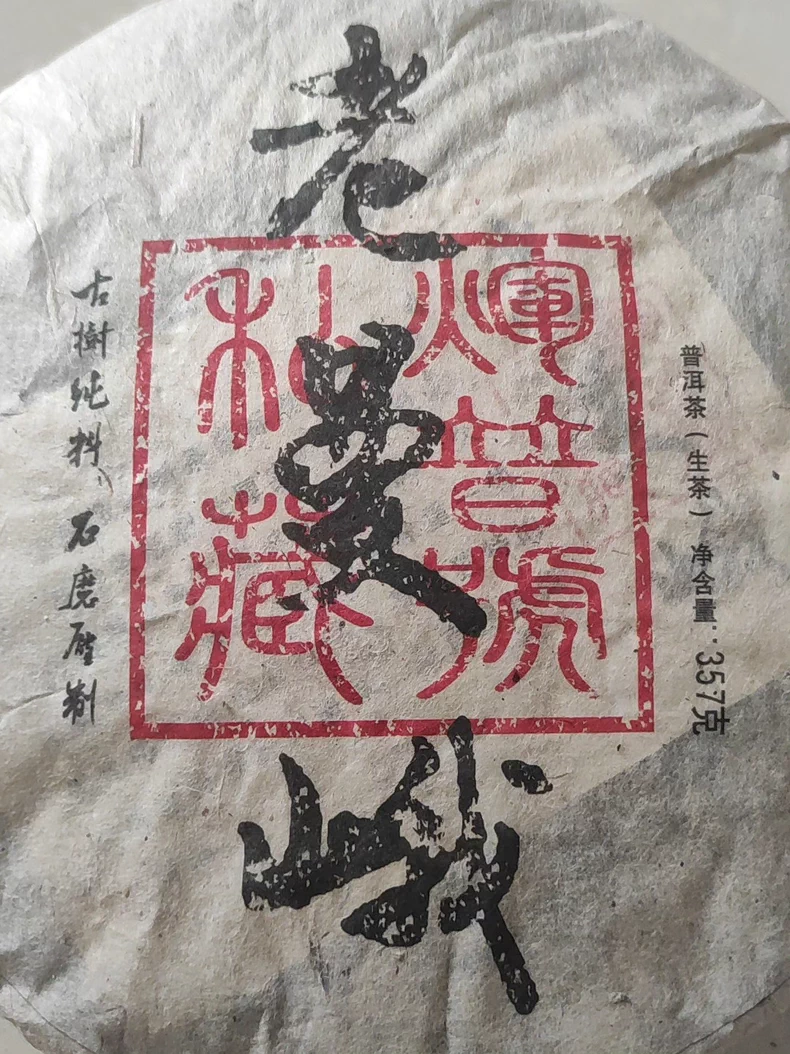 老曼峨
普洱茶（生茶） 净含量：357克
輝普號
私藏
古樹纯料、石磨压制